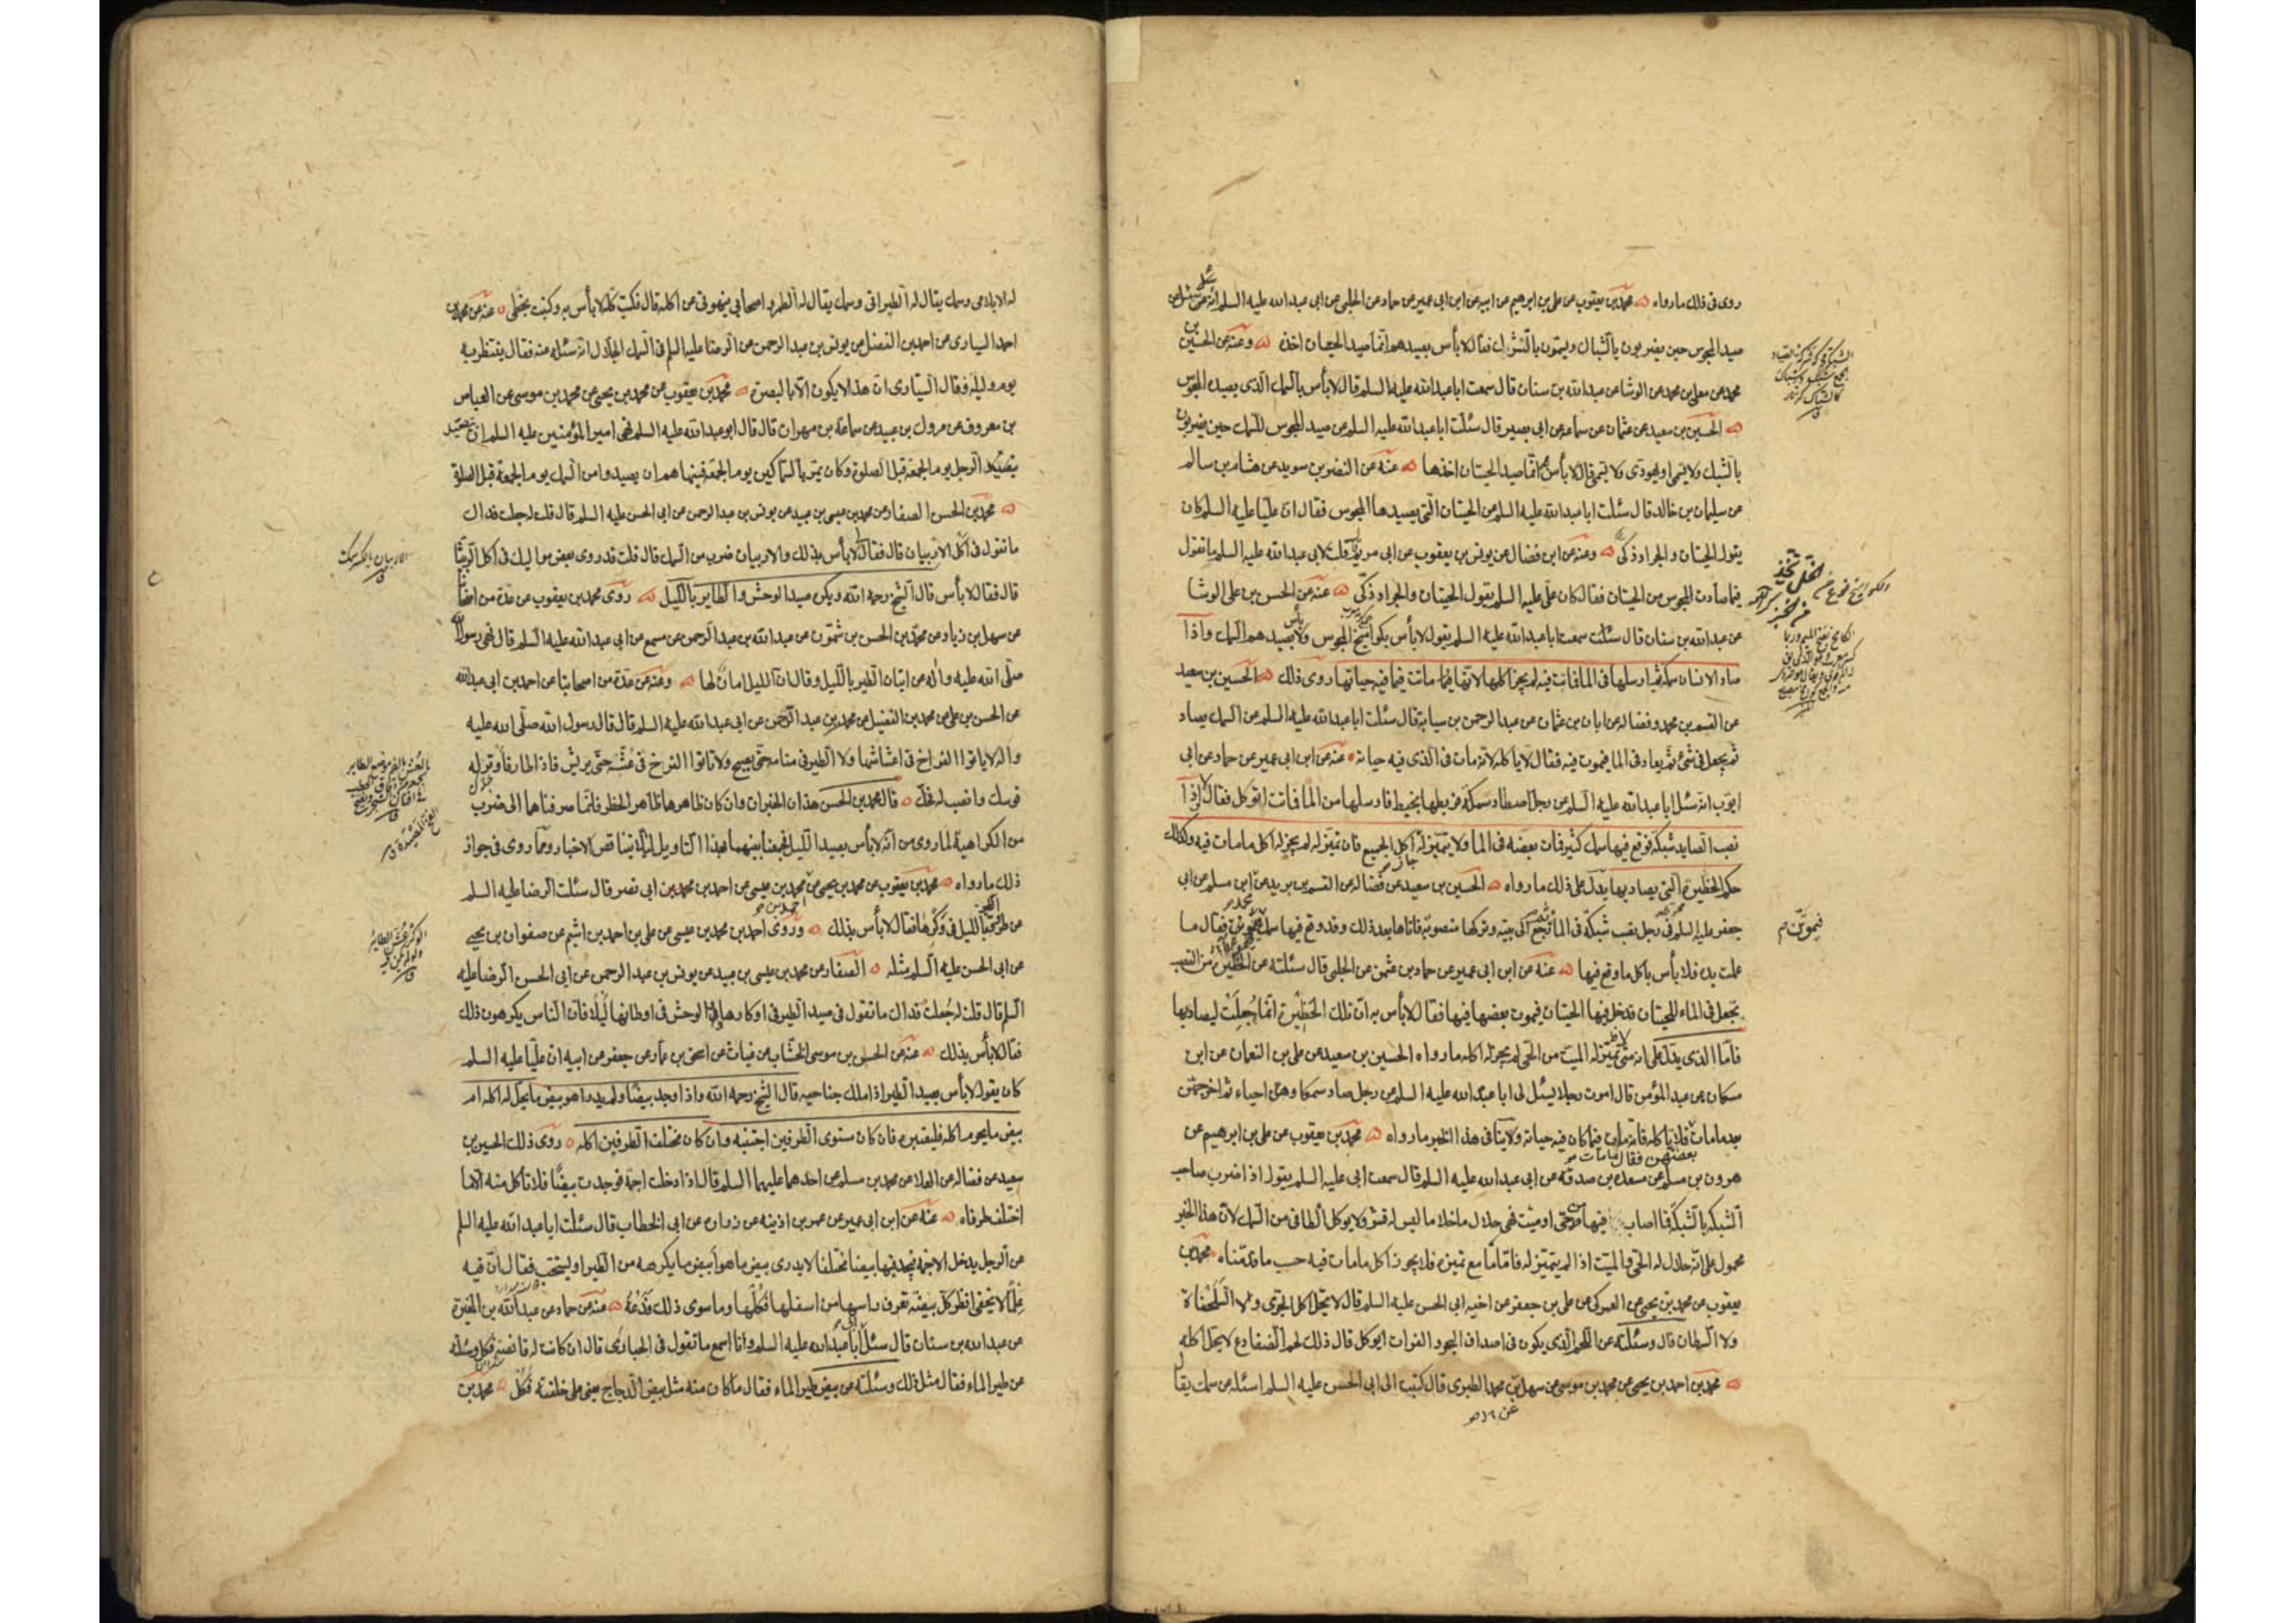 روى فى ذلك ما رواه محمد بن يعقوب عن على بن ابرهيم عن ابيه عن ابن ابى عمير عن حماد عن الحلبى عن ابى عبد الله عليه السلم انه سئل عن
صيد المجوس حين يضربون بالشباك ويسمون بالشرك فقال لا بأس بصيدهم انما صيد الحيتان اخذه وعنه عن الحسين بن
محمد عن معلى بن محمد عن الوشا عن عبد الله بن سنان قال سمعت ابا عبد الله عليه السلم قال لا بأس بالسمك الذى يصيده المجوس
الحسين بن سعيد عن عثمان عن سماعه عن ابى بصير قال سئلت ابا عبد الله عليه السلم عن صيد المجوس للسمك حين يضربون
بالشبك ولا يسمى او يهودى ولا يسمى قال لا بأس انما صيد الحيتان اخذها عنه عن النضر بن سويد عن هشام بن سالم
عن سليمان بن خالد قال سئلت ابا عبد الله عليه السلم عن الحيتان التى يصيدها المجوس فقال ان عليا عليه السلم كان
يقول الحيتان والجراد ذكى وعنه عن ابن فضال عن يونس بن يعقوب عن ابى مريم قلت لابى عبد الله عليه السلم ما تقول
فيما صادت المجوس من الحيتان فقال كان على عليه السلم يقول الحيتان والجراد ذكى عنه عن الحسن بن على الوشا
عن عبد الله بن سنان قال سئلت سمعت ابا عبد الله عليه السلم يقول لا بأس بكواميخ المجوس ولا بأس بصيدهم السمك واذا
صاد الانسان سمكة ثم ارسلها فى الماء فماتت فيه لم يجز اكلها لانها فيما ماتت فيما فيه حياتها روى ذلك الحسين بن سعيد
عن القسم بن محمد وفضاله عن ابان بن عثمان عن عبد الرحمن بن سيابة قال سئلت ابا عبد الله عليه السلم عن السمك يصاد
ثم يجعل فى شىء ثم يعاد فى الما فيموت فيه فقال لا ياكله لانه مات فى الذى فيه حياته عنه عن ابن ابى عمير عن حماد عن ابى
ايوب انه سئل ابا عبد الله عليه السلم عن رجل اصطاد سمكة فربطها بخيط فارسلها من الما فماتت اتوكل فقال لا اذا
نصب الصايد شبكة فوقع فيها سمك كثير فمات بعضه فى الما ولا يتميز له اكل الجميع فان تميز له لم يجز له اكل ما مات فيه وكذلك
حكم الحظيرة التى يصاد بها يدل على ذلك ما رواه الحسين بن سعيد عن فضاله عن القسم بن بريد عن ابن مسلم عن ابى
جعفر عليه السلم فى رجل نصب شبكة فى الماء ثم رجع الى بيته وتركها منصوبة فاتاها بعد ذلك وقد وقع فيها سمك فيموتن فقال ما
عملت يده فلا بأس باكل ما وقع فيها عنه عن ابن ابى عمير عن حماد بن عثمن عن الحلبى قال سئلته عن الحظيرة من القصب
تجعل فى الماء للحيتان فتدخل فيها الحيتان فيموت بعضها فيها فقال لا بأس به ان تلك الحظيرة انما جعلت ليصاد بها
فاما الذى يدل على انه متى تميز له الميت من الحى لم يجز له اكله ما رواه الحسين بن سعيد عن على بن النعمان عن ابن
مسكان عن عبد المؤمن قال امرت رجلا يسئل لى ابا عبد الله عليه السلم عن رجل صاد سمكا وهن احياء ثم اخرجهن
بعد ما مات فلا تاكله فانه مات فيما كان فيه حياته ولا ينافى هذا الخبر ما رواه محمد بن يعقوب عن على بن ابرهيم عن
بعضهن فقال ما مات
هرون بن مسلم عن مسعده بن صدقه عن ابى عبد الله عليه السلم قال سمعت ابى عليه السلم يقول اذا ضرب صاحب
الشبكه بالشبكه فما اصاب فيها من حى او ميت فهى حلال ما خلا ما ليس له قشر ولا يوكل الطافى من السمك لان هذا الخبر
محمول على انه حلال له الحى والميت اذا لم يتميز له فاما مع تميزه فلا يجوز اكل ما مات فيه حسب ما قدمناه محمد بن
يعقوب عن محمد بن يحيى عن العمركى عن على بن جعفر عن اخيه ابى الحسن عليه السلم قال لا يحل اكل الجرى ولا السلحفاة
ولا السرطان قال وسئلته عن اللحم الذى يكون فى اصداف البحر والفرات ايوكل قال ذلك لحم الضفادع لا يحل اكله
محمد بن احمد بن يحيى عن محمد بن موسى عن سهل بن محمد الطبرى قال كتبت الى ابى الحسن عليه السلم اسئله عن سمك يقال
فيموتن
له الابلامى وسمك يقال له الطبرانى وسمك يقال له الطمر واصحابى ينهونى عن اكله قال فكتب كله لا بأس به وكتبت بخطى عنه عن محمد بن
احمد السيارى عن احمد بن الفضل عن يونس بن عبد الرحمن عن الرضا عليه السلم فى السمك الجلال انه سئله عنه فقال ينتظر به
يوم وليلة فقال السيارى ان هذا لا يكون الا بالبصرة محمد بن يعقوب عن محمد بن يحيى عن محمد بن موسى عن العباس
بن معروف عن مروك بن عبيد عن سماعة بن مهران قال قال ابو عبد الله عليه السلم نهى امير المؤمنين عليه السلم ان
يتصيد الرجل يوم الجمعة قبل الصلوة وكان يمر بالسماكين يوم الجمعة فينهاهم ان يصيدوا من السمك يوم الجمعة قبل الصلوة
محمد بن الحسن الصفار عن محمد بن عيسى بن عبيد عن يونس بن عبد الرحمن عن ابى الحسن عليه السلم قال قلت له جعلت فداك
ما تقول فى اكل الاربيان قال فقال لا بأس بذلك والاربيان ضرب من السمك قال قلت قد روى بعض مواليك فى اكل الربيثا
قال فقال لا بأس قال الشيخ رحمه الله ويكره صيد الوحش والطاير بالليل روى محمد بن يعقوب عن عدة من اصحابنا
عن سهل بن زياد عن محمد بن الحسن بن شمون عن عبد الله بن عبد الرحمن عن مسمع عن ابى عبد الله عليه السلم قال نهى رسول الله
صلى الله عليه واله عن اتيان الطير بالليل وقال ان الليل امان لها وعنه عن عدة من اصحابنا عن احمد بن ابى عبد الله
عن الحسن بن على عن محمد بن الفضيل عن محمد بن عبد الرحمن عن ابى عبد الله عليه السلم قال قال رسول الله صلى الله عليه
واله لا تاتوا الفراخ فى اعشاشها ولا الطير فى منامه حتى يصبح ولا تاتوا الفرخ فى عشه حتى يريش فاذا طار فاوتر له
قوسك وانصب له فخك قال محمد بن الحسن هذان الخبران وان كان ظاهرهما ظاهر الحظر فانما صرفناهما الى ضرب
من الكراهية لما روى من انه لا بأس بصيد الليل فجمعنا بينهما بهذا التاويل لئلا يتناقض الاخبار ومما روى فى جواز
ذلك ما رواه محمد بن يعقوب عن محمد بن يحيى عن محمد بن عيسى عن احمد بن محمد بن ابى نصر قال سئلت الرضا عليه السلم
عن طروق الطير بالليل فى وكرها فقال لا بأس بذلك وروى احمد بن محمد بن عيسى عن على بن احمد بن اشيم عن صفوان بن يحيى
عن ابى الحسن عليه السلم مثله الصفار عن محمد بن عيسى بن عبيد عن يونس بن عبد الرحمن عن ابى الحسن الرضا عليه
السلم قال قلت له جعلت فداك ما تقول فى صيد الطير فى اوكارها والوحش فى اوطانها ليلا فان الناس يكرهون ذلك
فقال لا بأس بذلك عنه عن الحسن بن موسى الخشاب عن غياث عن اسحق بن عمار عن جعفر عن ابيه ان عليا عليه السلم
كان يقول لا بأس بصيد الطير اذا ملك جناحيه قال الشيخ رحمه الله واذا وجد بيضا ولم يدر اهو بيض ما يحل له اكله ام
بيض ما يحرم اكله فليعتبره فان كان مستوى الطرفين اجتنبه وان كان مختلف الطرفين اكله روى ذلك الحسين بن
سعيد عن فضاله عن العلا عن محمد بن مسلم عن احدهما عليهما السلم قال اذا دخلت اجمة فوجدت بيضا فلا تاكل منه الا ما
اختلف طرفاه عنه عن ابن ابى عمير عن عمر بن اذينه عن زراره عن ابى الخطاب قال سئلت ابا عبد الله عليه السلم
عن الرجل يدخل الاجمة فيجد فيها بيضا مختلفا لا يدرى بيض ما هو ابيض ما يكره من الطير او يستحب فقال ان فيه
علما لا يخفى انظر كل بيضه تعرف راسها من اسفلها فكلها وما سوى ذلك فدعه عنه عن حماد عن عبد الله بن المغيرة
عن عبد الله بن سنان قال سئل ابى ابا عبد الله عليه السلم وانا اسمع ما تقول فى الحبارى قال ان كانت له قانصة فكل وسئلته
عن طير الماء فقال مثل ذلك وسئلته عن بيض طير الماء فقال ما كان منه مثل بيض الدجاج يعنى على خلقته فكل محمد بن